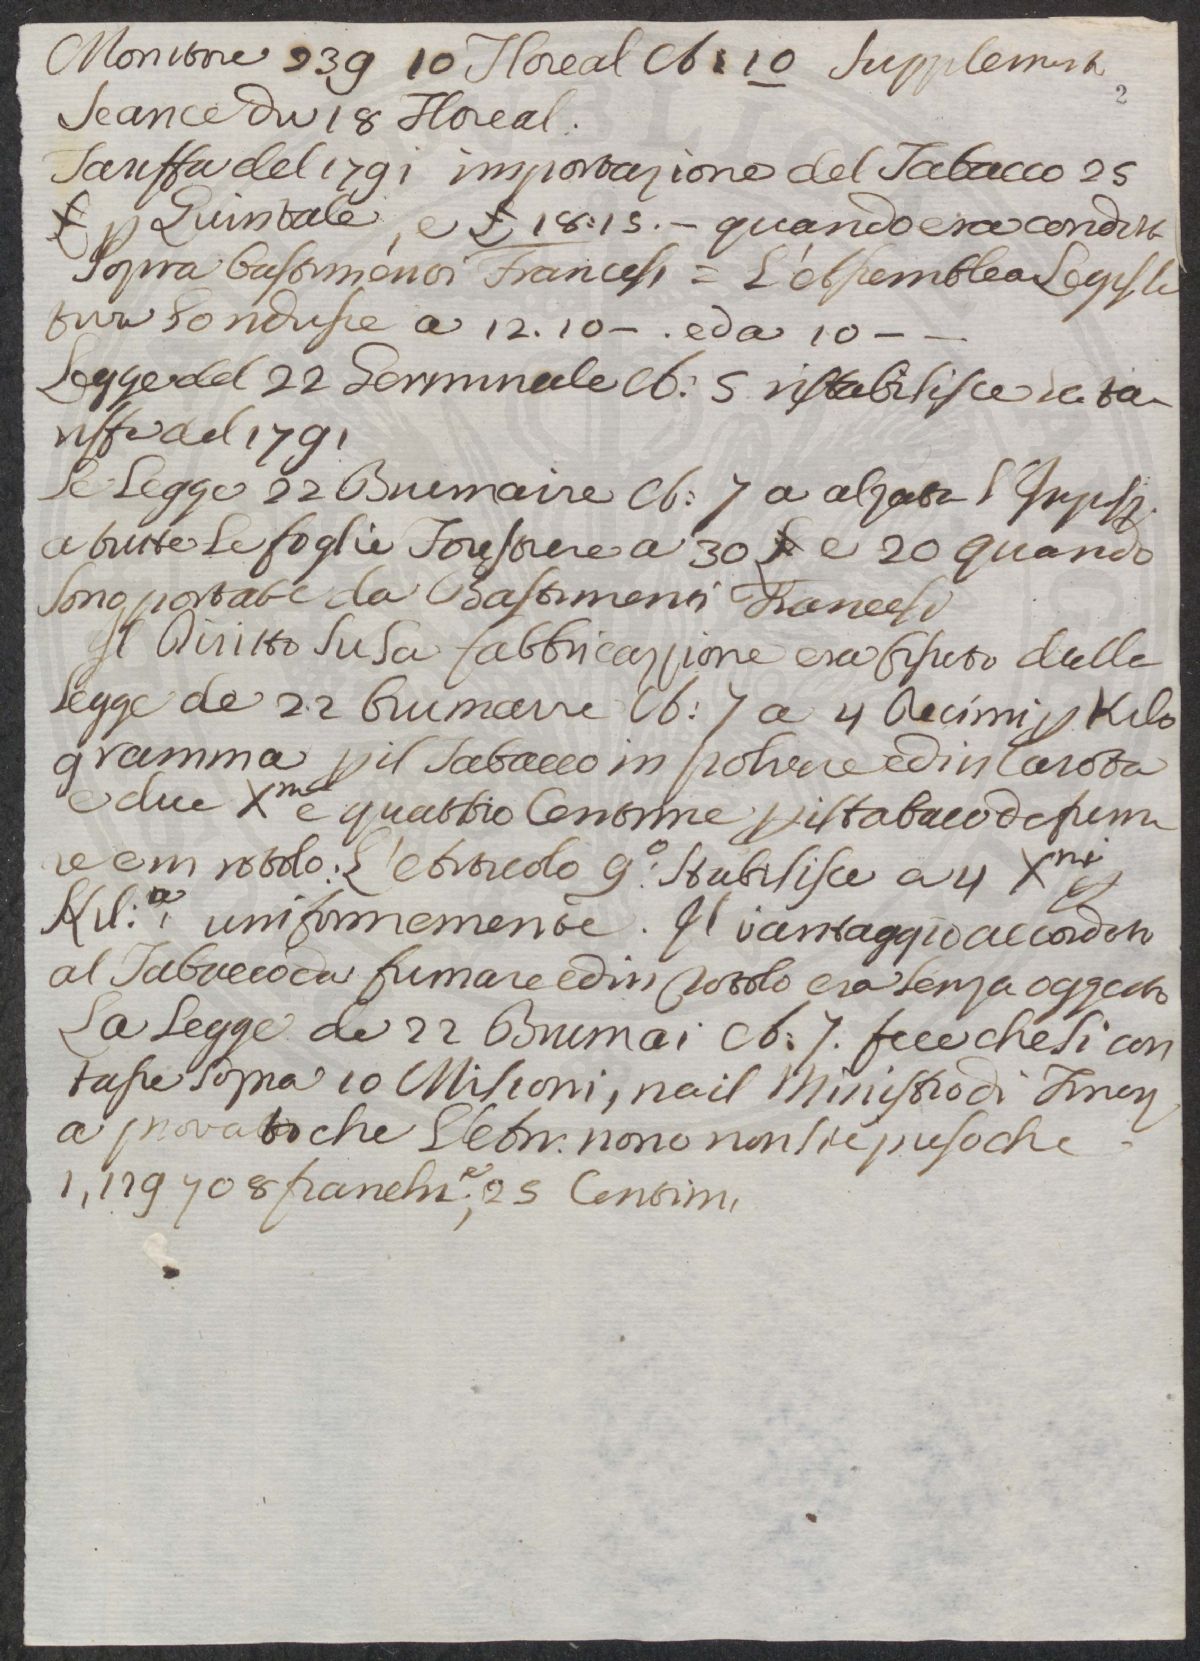 Monitore 239 10 Floreal A: 10 Supplement
2
Seance du 18 Floreal.
Tariffa del 1791 importazione del Tabacco 25
£ p Quintale, e £ 18:15.- quando era condott
sopra bastimenti Francesi = L'Assemblea Legisla
tiva  a 12.10-. ed a 10 - -
Legge del 22 Germinale A: 5 ristabilisce la ta-
riffa del 1791
La Legge 22 Brumaire A: 7 a alzata l'
a tutte le foglie Forestiere a 30 £ e 20 quando
sono portate da Bastimenti Francesi
Il Diritto su la fabbricazione era fissato dalla
legge de 22 brumaire A: 7 a 4 Decimi p Kilo
gramma p il Tabacco in polvere ed in Carotta
e due Xmi e quattro Centime p il tabacco da fuma
re e in rotolo. L'Articolo 9º. Stabilisce a 4 Xmi p
Kil:a uniformemente. Il vantaggio accordato
al Tabacco da fumare ed in rotolo era senza oggetto
La Legge de 22 Brumai A: 7. fece che si con
tasse sopra 10 Milioni, ma il Ministro di Finanz
a provato che L'An. nono non si è preso che
1,129 708 franchi, 25 Centimi